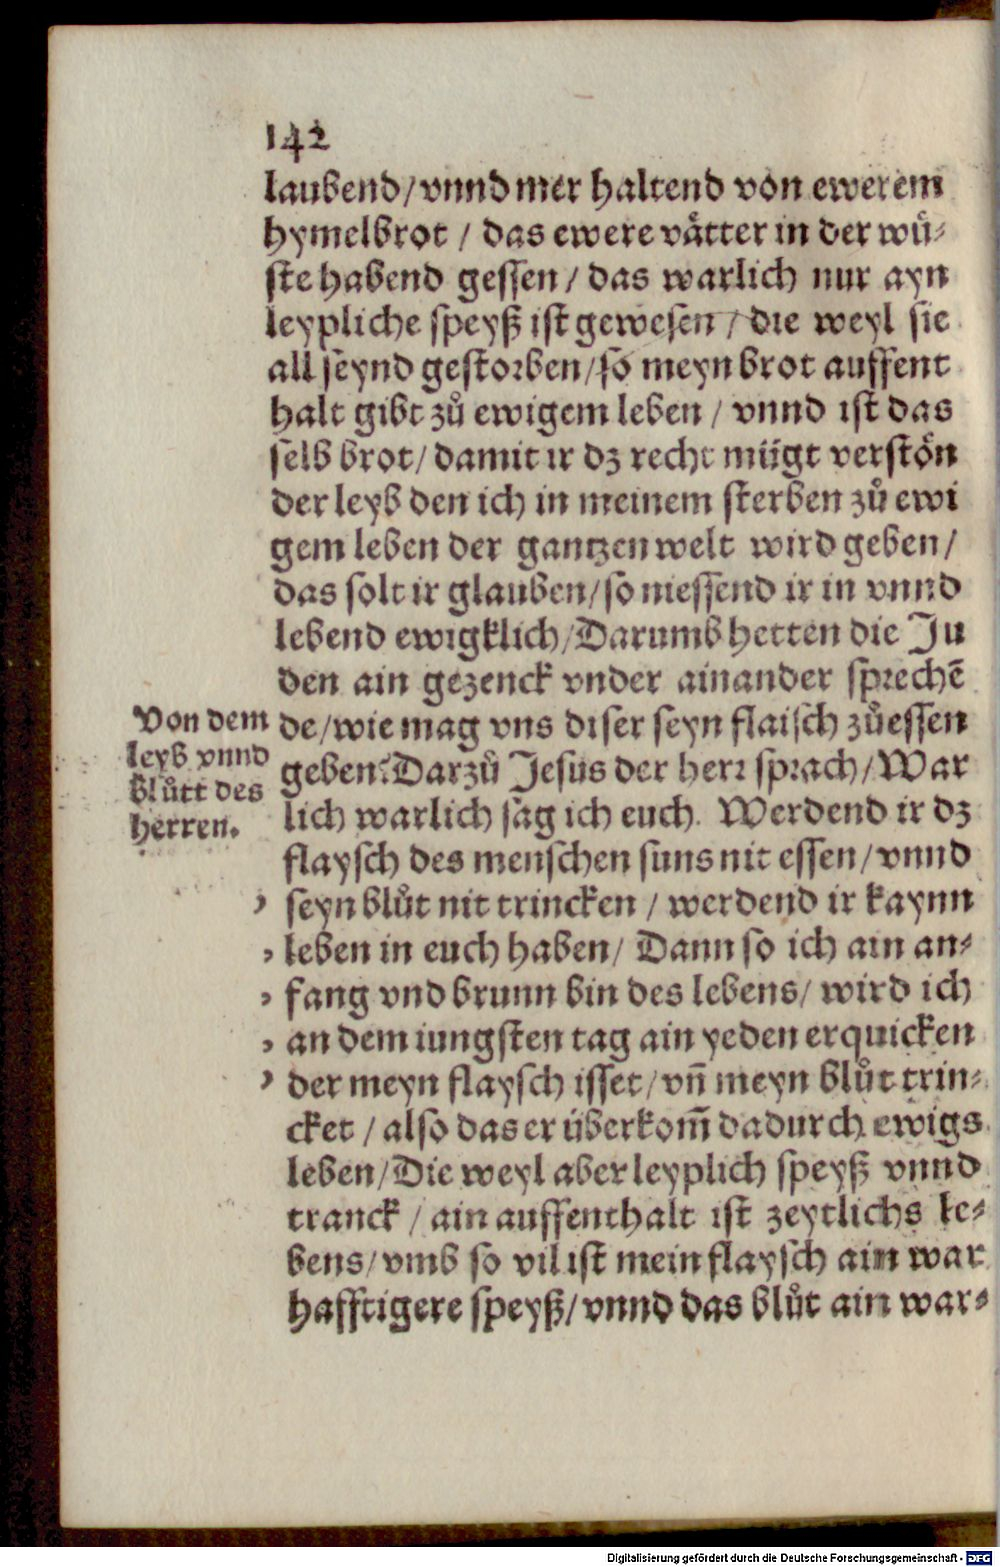 142
laubend/ vnnd mer haltend von ewerem
hymelbrot / das ewere vaͤtter in der wuͤ⸗
ste habend gessen / das warlich nur ayn
leypliche speyß ist gewesen / die weyl sie
all seynd gestorben/ so meyn brot auffent
halt gibt zů ewigem leben / vnnd ist das
selb brot/ damit ir dz recht muͤgt verstoͤn
der leyb den ich in meinem sterben zů ewi
gem leben der gantzen welt wird geben/
das solt ir glauben/ so niessend ir in vnnd
lebend ewigklich/ Darumb hetten die Ju
den ain gezenck vnder ainander sprechē
Von dem
leyb vnnd
blůtt des
herren.
de/ wie mag vns diser seyn flaisch zů essen
geben? Darzů Jesus der herr sprach/ War
lich warlich sag ich euch. Werdend ir dz
flaysch des menschen suns nit essen/ vnnd
, seyn blůt nit trincken / werdend ir kaynn
, leben in euch haben/ Dann so ich ain an⸗
, fang vnd brunn bin des lebens/ wird ich
, an dem iungsten tag ain yeden erquicken
, der meyn flaysch isset/ vn̄ meyn blůt trin⸗
cket / also das er überkom̄ dadurch ewigs
leben/ Die weyl aber leyplich speyß vnnd
tranck / ain auffenthalt ist zeytlichs le⸗
bens/ vmb so vil ist mein flaysch ain war
hafftigere speyß/ vnnd das blůt ain war⸗
Digitalisierung gefördert durch die Deutsche Forschungsgemeinschaft - DFG